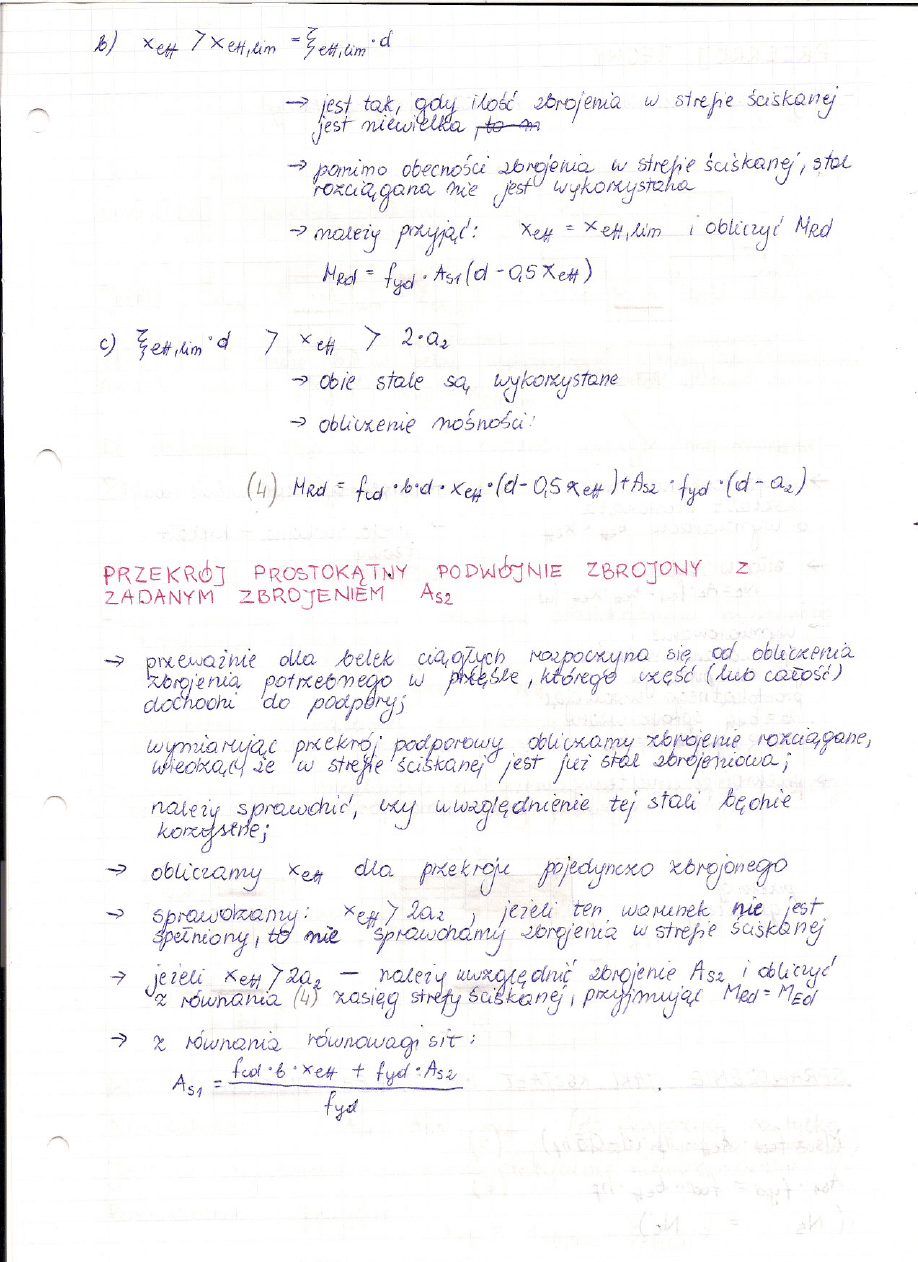 b) x_eff > x_eff,lim = ξ_eff,lim · d
→ jest tak, gdy ilość zbrojenia w strefie ściskanej
jest niewielka
→ pomimo obecności zbrojenia w strefie ściskanej, stal
rozciągana nie jest wykorzystana
→ należy przyjąć: x_eff = x_eff,lim i obliczyć M_Rd
M_Rd = f_yd · A_S1 (d - 0,5 x_eff)
c) ξ_eff,lim · d > x_eff > 2 · a_2
→ obie stale są wykorzystane
→ obliczenie nośności:
(4) M_Rd = f_cd · b · d · x_eff · (d - 0,5 x_eff) + A_S2 · f_yd · (d - a_2)
PRZEKRÓJ PROSTOKĄTNY PODWÓJNIE ZBROJONY Z
ZADANYM ZBROJENIEM A_S2
→ przeważnie dla belek ciągłych rozpoczyna się od obliczenia
zbrojenia potrzebnego w przęśle, którego część (lub całość)
dochodzi do podpory;
wymiarując przekrój podporowy obliczamy zbrojenie rozciągane,
wiedząc, że w strefie ściskanej jest już stal zbrojeniowa;
należy sprawdzić, czy uwzględnienie tej stali będzie
korzystne;
→ obliczamy x_eff dla przekroju pojedynczo zbrojonego
→ sprawdzamy: x_eff > 2a_2 , jeżeli ten warunek nie jest
spełniony, to nie sprawdzamy zbrojenia w strefie ściskanej
→ jeżeli x_eff > 2a_2 — należy uwzględnić zbrojenie A_S2 i obliczyć
z równania (4) zasięg strefy ściskanej, przyjmując M_Rd = M_Ed
→ z równania równowagi sił:
A_S1 = (f_cd · b · x_eff + f_yd · A_S2) / f_yd